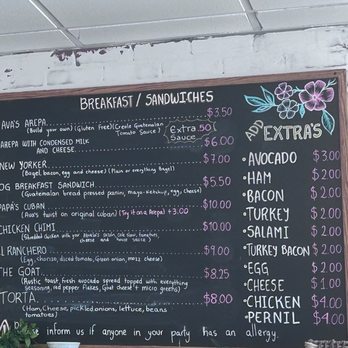 BREAKFAST / SANDWICHES
AVA'S AREPA $3.50
(Build your own) (Gluten Free) (Creole Guatemalan
Tomato Sauce)
Extra .50
Sauce
AREPA WITH CONDENSED MILK
AND CHEESE $6.00
NEW YORKER $7.00
(Bagel, bacon, egg and cheese) (Plain or everything Bagel)
OG BREAKFAST SANDWICH $5.50
(Guatemalan bread pressed panini, mayo-ketchup, egg, cheese)
PAPA'S CUBAN $10.00
(Ava's twist on original cuban) (Try it on a Arepa) +3.00
CHICKEN CHIMI $10.00
(Shredded chicken with
cheese and house sauce)
RANCHERO $9.00
(Egg, chorizo, diced tomato, Green onion, mozz cheese)
THE GOAT $8.25
(Rustic toast, fresh avocado spread topped with everything
seasoning, red pepper flakes, Goat cheese + micro greens)
TORTA $8.00
(Ham, Cheese, pickled onions, lettuce, beans
tomatoes)
inform us if anyone in your party has an allergy.
ADD EXTRA'S
• AVOCADO $3.00
• HAM $2.00
• BACON $2.00
• TURKEY $2.00
• SALAMI $2.00
• TURKEY BACON $2.00
• EGG $2.00
• CHEESE $1.00
• CHICKEN $4.00
• PERNIL $4.00